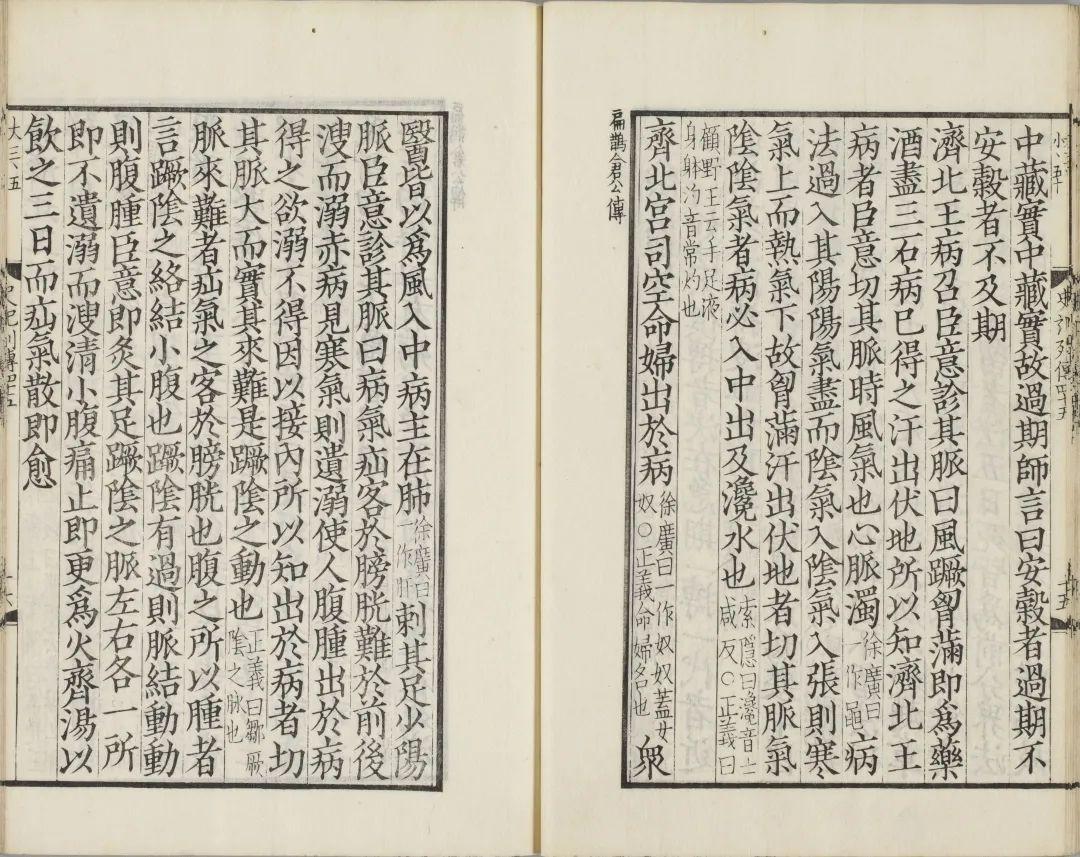 中藏實中藏實故過期師言曰安穀者過期不
安穀者不及期
濟北王病召臣意診其脈曰風蹶胷滿即爲藥
酒盡三石病已得之汗出伏地所以知濟北王
病者臣意切其脈時風氣也心脈濁徐廣曰一作黽病
法過入其陽陽氣盡而陰氣入陰氣入張則寒
氣上而熱氣下故胷滿汗出伏地者切其脈氣
陰陰氣者病必入中出及瀺水也索隱曰瀺音士咸反○正義曰
顧野王云手足液身躰汋音常灼也
齊北宮司空命婦出於病徐廣曰一作奴奴蓋女奴○正義命婦名也衆
扁鵲倉公傳
醫皆以爲風入中病主在肺徐廣曰一作肝刺其足少陽
脈臣意診其脈曰病氣疝客於膀胱難於前後
溲而溺赤病見寒氣則遺溺使人腹腫出於病
得之欲溺不得因以接內所以知出於病者切
其脈大而實其來難是蹶陰之動也正義曰鄒厥陰之脈也
脈來難者疝氣之客於膀胱也腹之所以腫者
言蹶陰之絡結小腹也蹶陰有過則脈結動動
則腹腫臣意即灸其足蹶陰之脈左右各一所
即不遺溺而溲清小腹痛止即更爲火齊湯以
飮之三日而疝氣散即愈
大三五
史記列傳四十五
十六